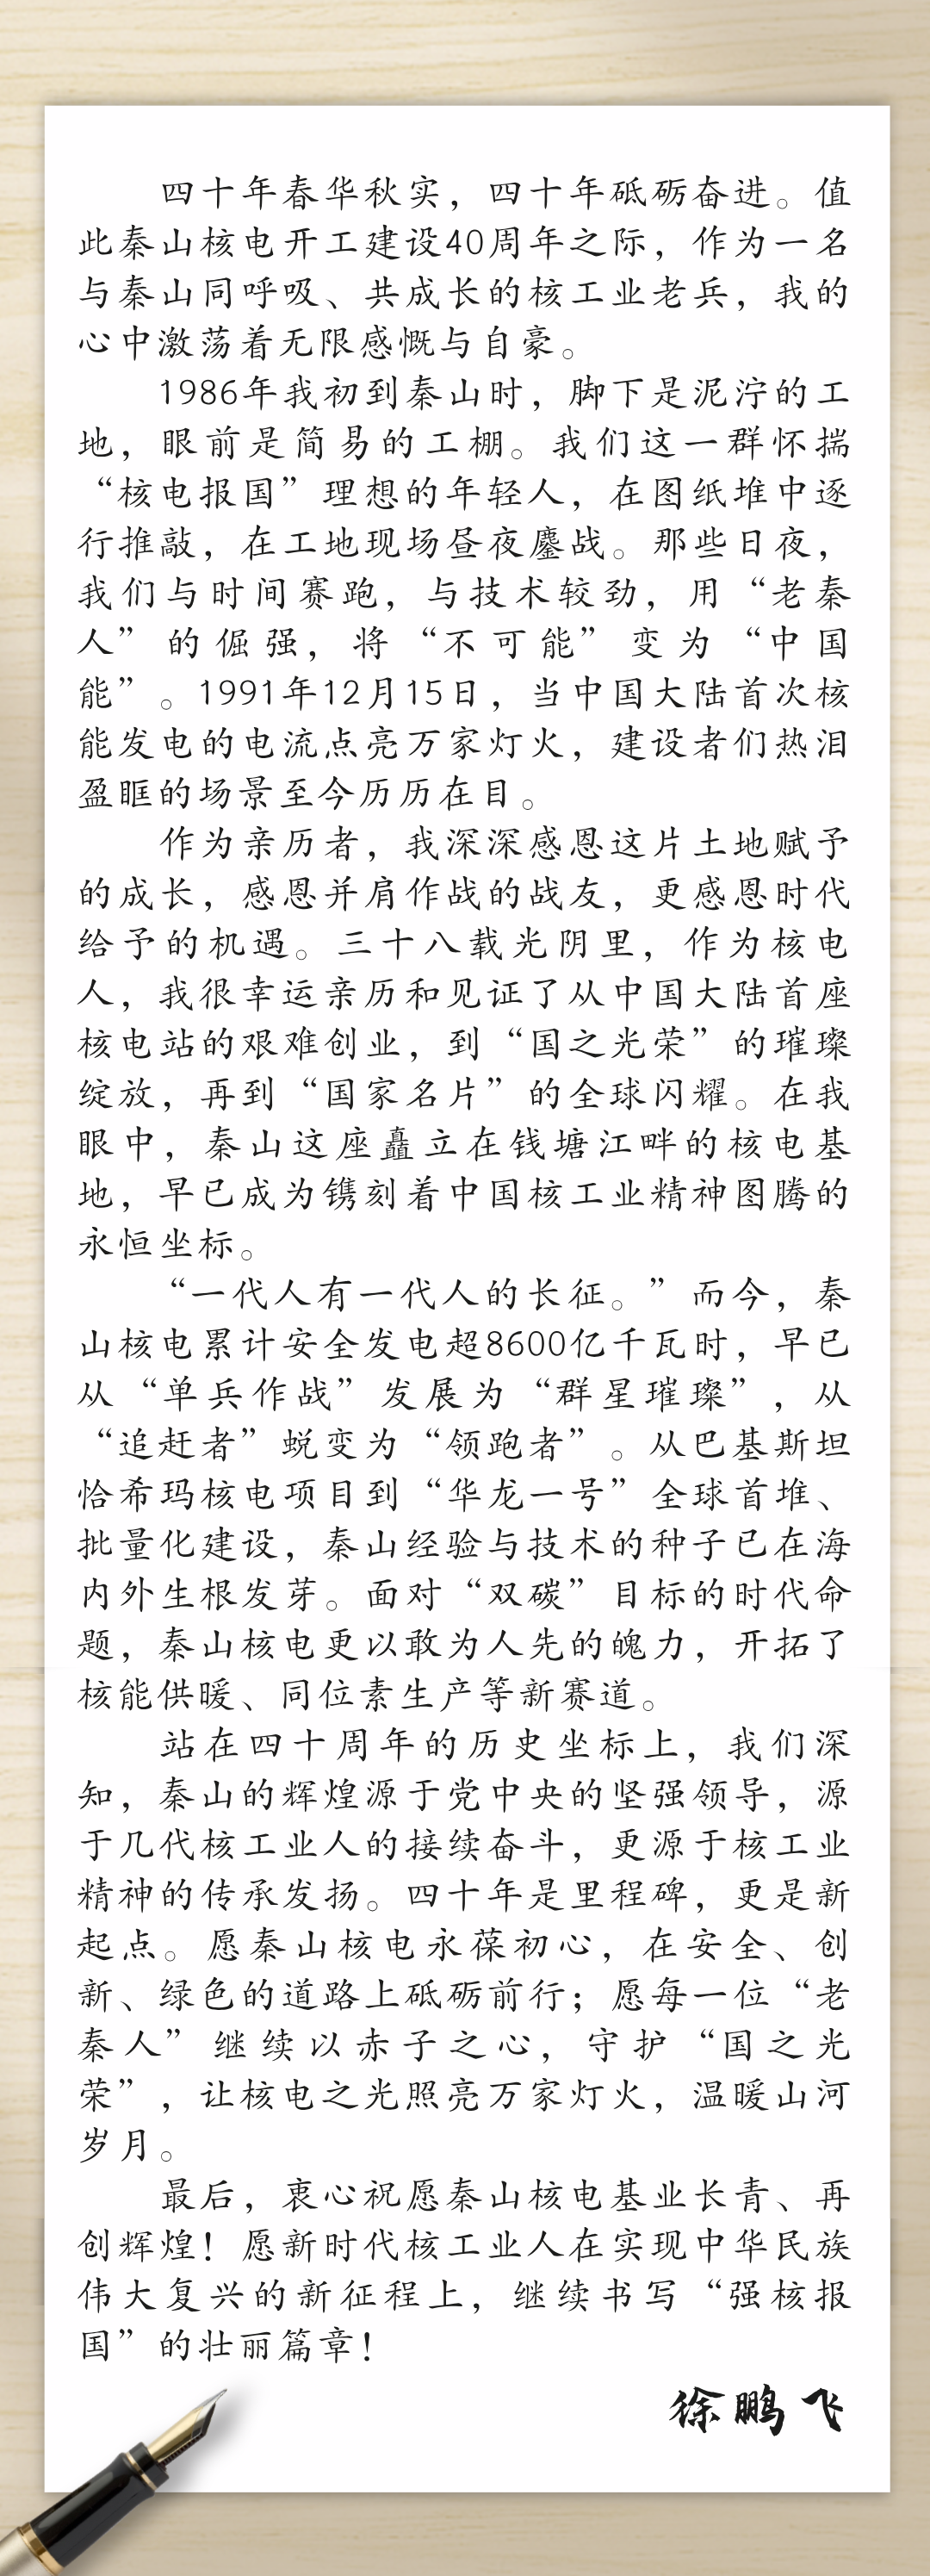 四十年春华秋实，四十年砥砺奋进。值
此秦山核电开工建设40周年之际，作为一名
与秦山同呼吸、共成长的核工业老兵，我的
心中激荡着无限感慨与自豪。
1986年我初到秦山时，脚下是泥泞的工
地，眼前是简易的工棚。我们这一群怀揣
“核电报国”理想的年轻人，在图纸堆中逐
行推敲，在工地现场昼夜鏖战。那些日夜，
我们与时间赛跑，与技术较劲，用“老秦
人”的倔强，将“不可能”变为“中国
能”。1991年12月15日，当中国大陆首次核
能发电的电流点亮万家灯火，建设者们热泪
盈眶的场景至今历历在目。
作为亲历者，我深深感恩这片土地赋予
的成长，感恩并肩作战的战友，更感恩时代
给予的机遇。三十八载光阴里，作为核电
人，我很幸运亲历和见证了从中国大陆首座
核电站的艰难创业，到“国之光荣”的璀璨
绽放，再到“国家名片”的全球闪耀。在我
眼中，秦山这座矗立在钱塘江畔的核电基
地，早已成为镌刻着中国核工业精神图腾的
永恒坐标。
“一代人有一代人的长征。”而今，秦
山核电累计安全发电超8600亿千瓦时，早已
从“单兵作战”发展为“群星璀璨”，从
“追赶者”蜕变为“领跑者”。从巴基斯坦
恰希玛核电项目到“华龙一号”全球首堆、
批量化建设，秦山经验与技术的种子已在海
内外生根发芽。面对“双碳”目标的时代命
题，秦山核电更以敢为人先的魄力，开拓了
核能供暖、同位素生产等新赛道。
站在四十周年的历史坐标上，我们深
知，秦山的辉煌源于党中央的坚强领导，源
于几代核工业人的接续奋斗，更源于核工业
精神的传承发扬。四十年是里程碑，更是新
起点。愿秦山核电永葆初心，在安全、创
新、绿色的道路上砥砺前行；愿每一位“老
秦人”继续以赤子之心，守护“国之光
荣”，让核电之光照亮万家灯火，温暖山河
岁月。
最后，衷心祝愿秦山核电基业长青、再
创辉煌！愿新时代核工业人在实现中华民族
伟大复兴的新征程上，继续书写“强核报
国”的壮丽篇章！
徐鹏飞